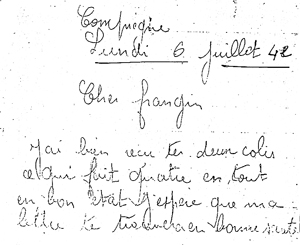 Compiègne
Lundi 6 juillet 42
Cher frangin
j'ai bien reçu tes deux colis
ce qui fait quatre en tout
en bon état j'espère que ma
lettre te trouvera en bonne santé